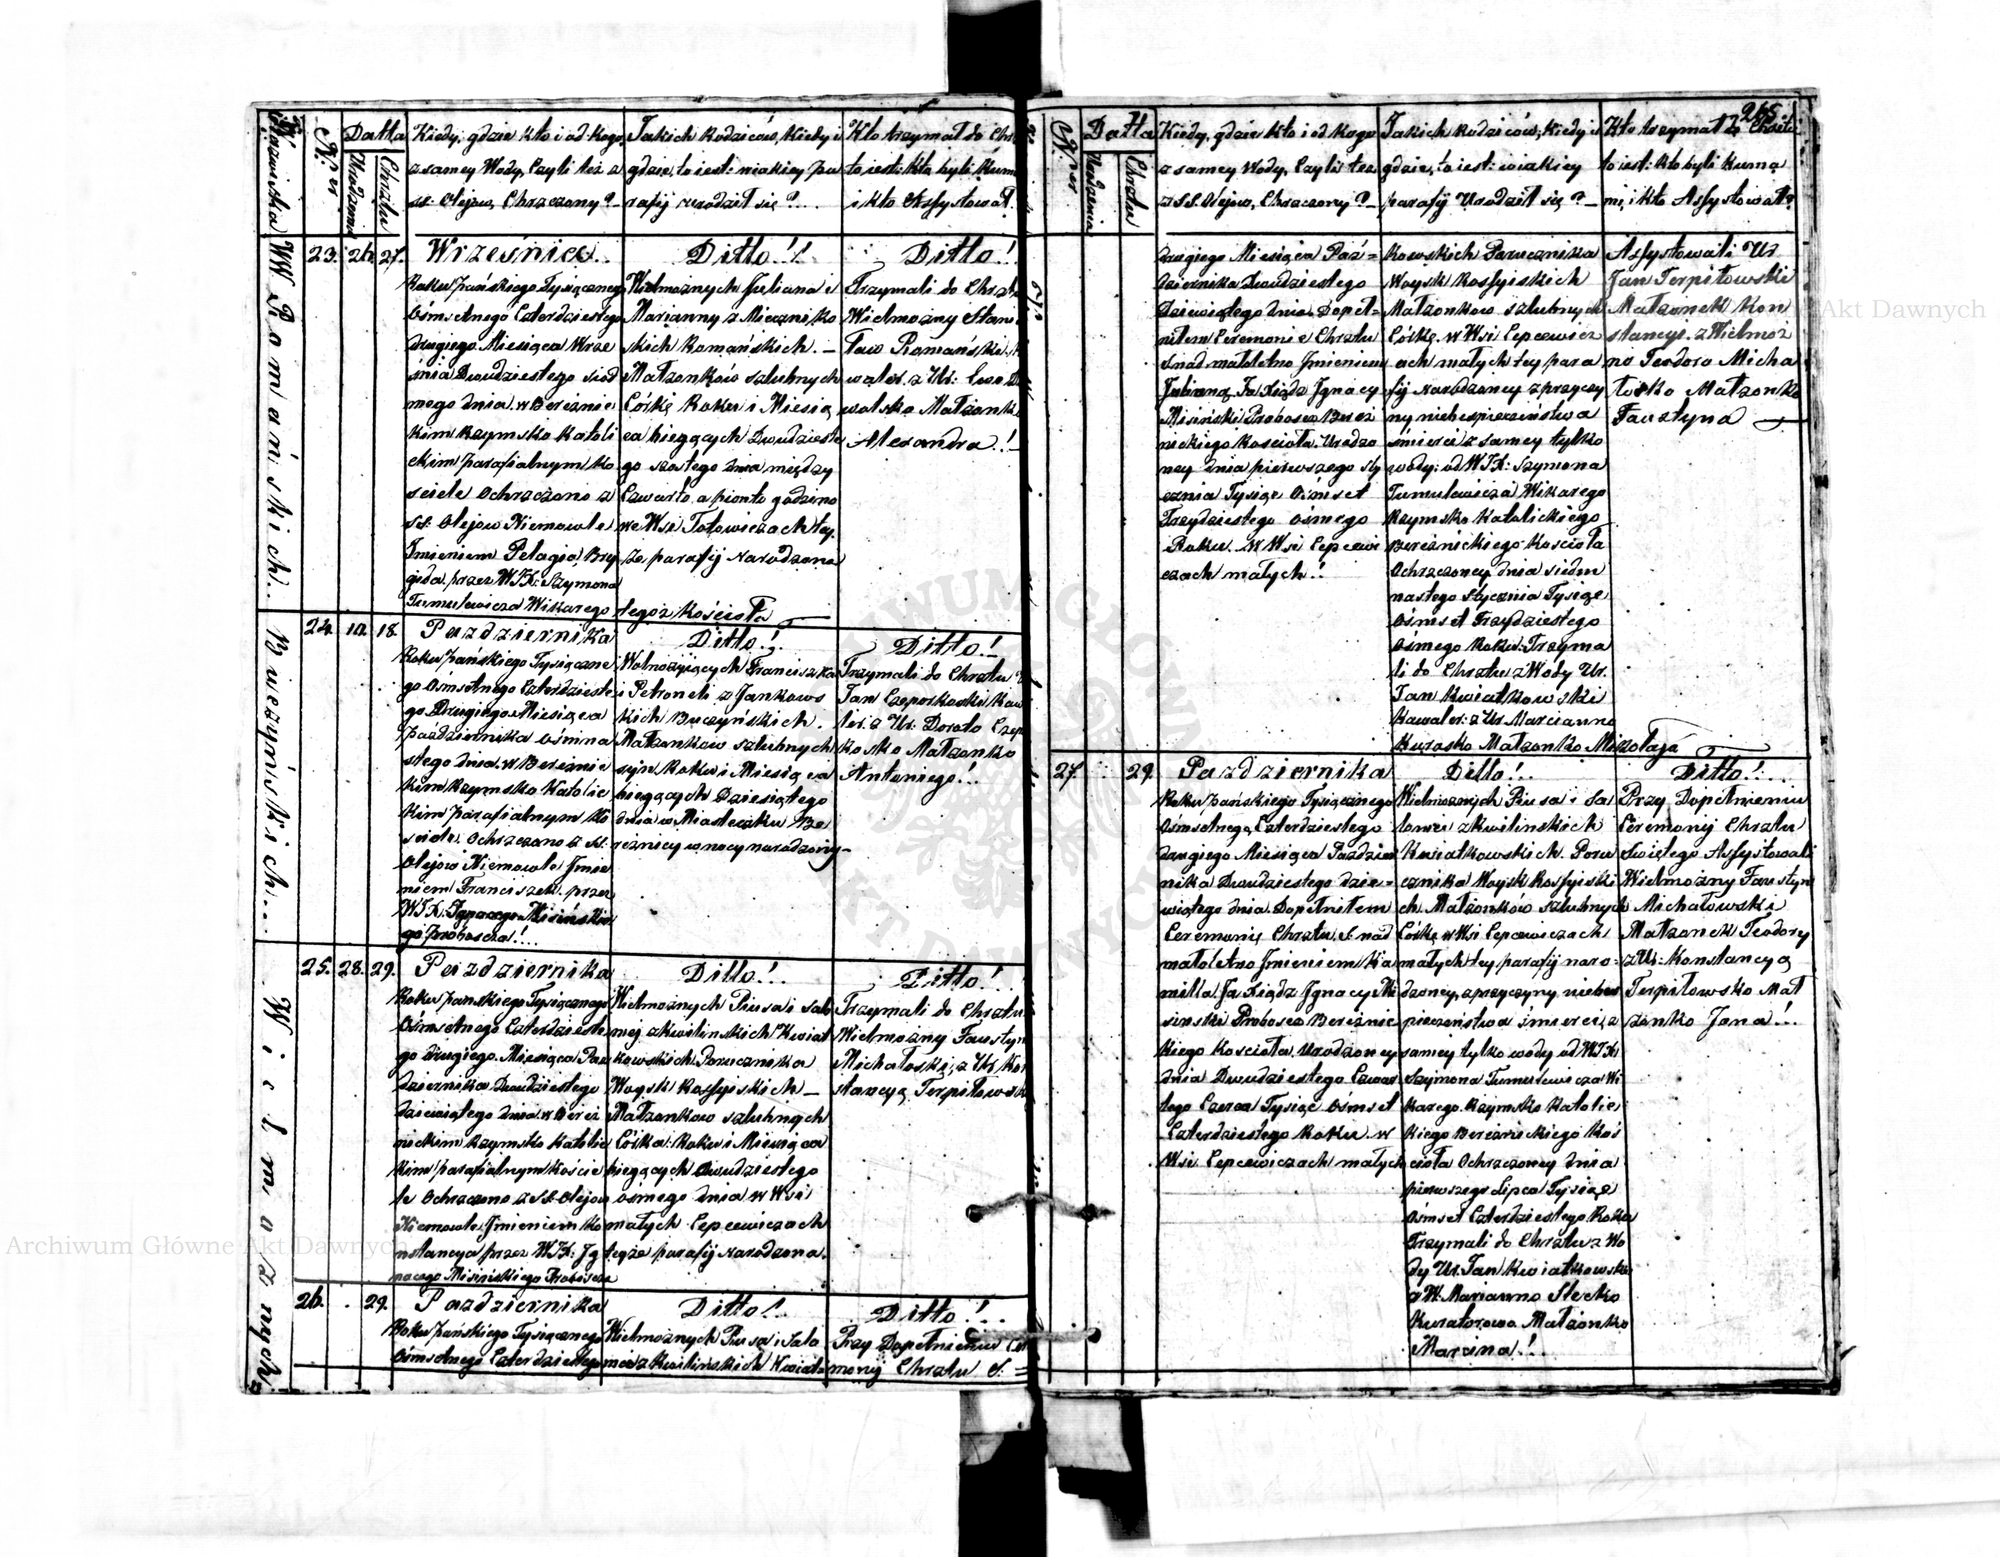 265
Nr
Datta
Urodzenia
Chrztu
Kiedy, gdzie kto i od kogo
z samey Wody, Czyli też z
SS: Olejow, Chrzczony?
Jakich Rodziców, Kiedy i
gdzie, to iest: w iakiey pa
rafij urodził się?
Kto trzymał do Chrz
to iest: Kto byli Kuma
i kto Assystował
WW Romańskich.
23. 26. 27.
Września
Roku Pańskiego Tysiącznego
Ośmsetnego Czterdziestego
drugiego Miesiąca Wrze
śnia Dwudziestego siód
mego dnia w Bereznic
kim Rzymsko Katoli
ckim parafialnym Ko
sciele Ochrzczono z
SS: Olejow Niemowle
Imieniem Pelagia, Bry
gida, przez WJX: Szymona
Tumulewicza Wikarego tegoż Kościoła
Ditto!
Wielmożnych Juliana i
Maryanny z Mieczniko
skich Romańskich.
Małżonków szlubnych
Córkę Roku i Miesią
ca bieżących Dwudzieste
go szostego dnia między
Czwarto, a pionto godzino
we Wsi Tołowiczach tey
że parafij Narodzona
Ditto!
Trzymali do Chrztu
Wielmożny Stani
sław Romański, K
waler z Ur:
walsko Małżonk
Alexandra!
Buczyńskich...
24. 10. 18.
Pazdziernika
Roku Pańskiego Tysiączne
go Ośmsetnego Czterdzieste
go Drugiego Miesiąca
Października Ośmna
stego dnia w Bereznic
kim Rzymsko Katolic
kim parafialnym Ko
sciele Ochrzczono z SS:
Olejow Niemowle Imie
niem Franciszek przez
WJX: Ignacego Misińskie
go Proboscza!
Ditto!
Wolnożyiących Franciszka
i Petroneli z Jankows
kich Buczyńskich.
Małżonkow szlubnych
syn Roku i Miesiąca
bieżących Dziesiątego
dnia w Miasteczku Be
reżnicy w nocy narodzony
Ditto!
Trzymali do Chrztu
Jan Czeporkoski Kaw
ler. z Ur: Doroto Czep
kosko Małżonko
Antoniego!
Wielmożnych
25. 28. 29.
Pazdziernika
Roku Pańskiego Tysiącznego
Ośmsetnego Czterdzieste
go drugiego Miesiąca Paz
dziernika Dwudziestego
dziewiątego dnia w Berez
nickim Rzymsko Katolic
kim parafialnym Koscie
le Ochrzczono z SS. Olejow
Niemowle Imieniem Ko
nstancya przez WJX: Ig
nacego Misińskiego Proboscza
Ditto!
Wielmożnych Piusa i Salo
mej z Kwilinskich Kwiat
kowskich Porucznika
Woysk Rossyiskich
Małżonkow szlubnych
Córka: Roku i Miesiąca
bieżących Dwudziestego
osmego dnia w Wsi
małych Cepcewiczach
teyże parafij Narodzona.
Ditto!
Trzymali do Chrztu
Wielmożny Faustyn
Michałoski, z Ur Kon
stancyą Terpiłowsk
26. . 29.
Pazdziernika
Roku Pańskiego Tysiącznego
Ośmsetnego Czterdziestego
Ditto!
Wielmożnych Piusa i Salo
mei z Kwilińskich Kwiat=
Ditto!
Przy Dopełnieniu Cer
monij Chrztu S. =
Nr
Datta
Urodzenia
Chrztu
Kiedy, gdzie kto i od kogo
z samey Wody, Czyli tez
z SS. Olejow, Chrzczony?
Jakich Rodziców, Kiedy i
gdzie, to iest: w iakiey
parafij Urodził się?
Kto trzymał do Chrztu
to iest: Kto byli Kuma
mi, i kto Assystował?
drugiego Miesiąca Paź=
dziernika Dwudziestego
Dziewiątego dnia. Dopeł=
niłem Ceremonie Chrztu
S nad małoletno Imieniem
Julianną, Ja Xiądz Ignacy
Misiński Proboscz Berez
nickiego Kosciola. Urodzo
ney dnia pierwszego Sty
cznia Tysiąc Ośmset
Trzydziestego ośmego
Roku. W Wsi Cepcewi
czach małych!
kowskich Porucznika
Woysk Rossyiskich
Małżonkow szlubnych
Córkę, w Wsi Cepcewicz
ach małych tey para
fij Narodzoney z przyczy
ny niebespieczeństwa
śmierci z samey tylko
wody: od WJX: Szymona
Tumulewicza Wikarego
Rzymsko Katolickiego
Bereznickiego Kosciola
Ochrzczoney dnia siedm
nastego Stycznia Tysiąc
Ośmset Trzydziestego
Ośmego Roku. Trzyma
li do Chrztu z Wody Ur.
Jan Kwiatkowski
Kawaler: z Ur Marcianno
Kurasko Małżonko Mikołaja
Assystowali Ur
Jan Terpiłowski
Małżonek Kon
stancyi. z Wielmoż
no Teodoro Micha
łosko Małżonko
Faustyna
27. 29.
Pazdziernika
Roku Pańskiego Tysiącznego
Ośmsetnego, Czterdziestego
drugiego Miesiąca Pazdzier
nika Dwudziestego dzie=
wiątego dnia. Dopełniłem
Ceremonię Chrztu S. nad
małoletno Imieniem Ka
milla Ja Xiądz Ignacy Mi
sinski Proboscz Bereznic
kiego Kosciola. Urodzoney
dnia Dwudziestego Czwar
tego Czerca Tysiąc Ośmset
Czterdziestego Roku w
Wsi Cepcewiczach małych
Ditto!
Wielmożnych Piusa i Sa
lomei z Kwilinskich
Kwiatkowskich. Poru
cznika Woysk Rossyiski
ch. Małżonków szlubnych
Córkę w Wsi Cepcewiczach
małych tey parafij naro=
dzoney, z przyczyny niebes
pieczeństwa śmierci, z
samey tylko wody od WJX:
Szymona Tumulewicza Wi
karego. Rzymsko Katolic
kiego Bereznickiego Koś
cioła Ochrzczoney dnia
pierwszego Lipca Tysiąc
Ośmset Czterdziestego Roku
Trzymali do Chrztu z Wo
dy Ur. Jan Kwiatkowski
z W. Marianno Stecko
Kuratorowa Małżonko
Marcina!
Ditto!
Przy Dopełnieniu
Ceremonij Chrztu
Świętego Assystowali
Wielmożny Faustyn
Michałowski
Małżonek Teodory
z Ur: Konstancyą
Terpiłowsko Mał
żonko Jana!
Archiwum Główne Akt Dawnych